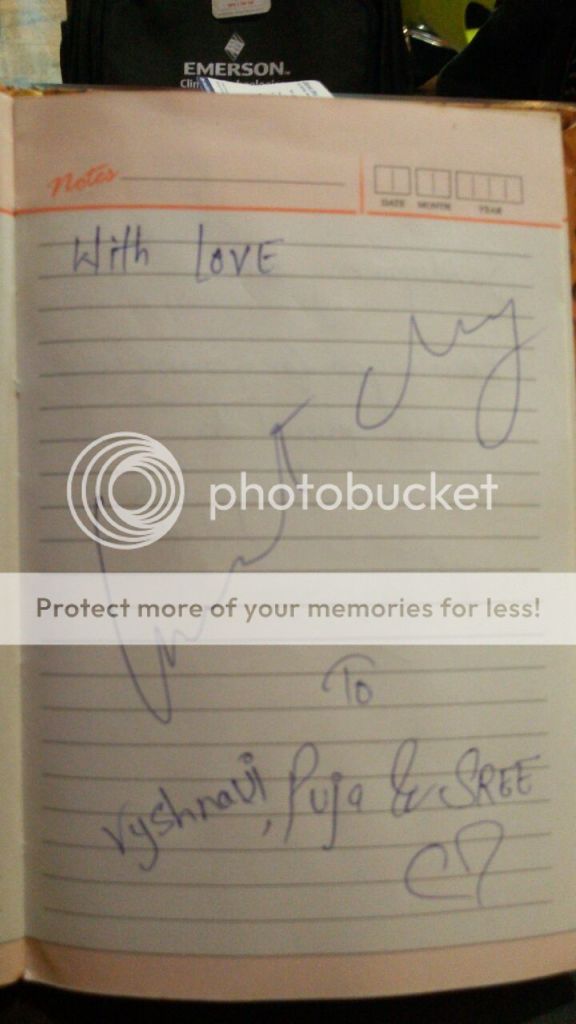 EMERSON
Notes
DATE MONTH YEAR
With LOVE
photobucket
Protect more of your memories for less!
To
Vyshnavi, Puja & SREE